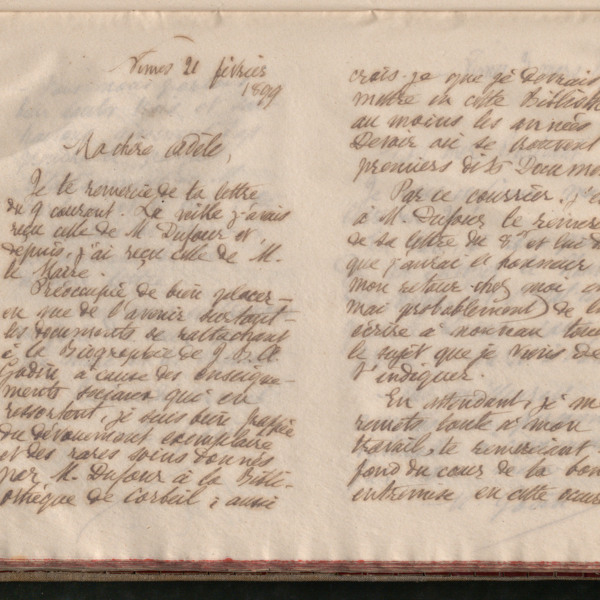 Nîmes 21 février
1899
Ma chère Adèle,
Je te remercie de ta lettre
du 9 courant. La veille j'avais
reçu celle de M. Dufour et,
depuis, j'ai reçu celle de M.
le Maire.
Préoccupé de bien placer –
en vue de l'avenir surtout –
les documents se rattachant
à la Biographie de J. Bte Ae
Godin, à cause des enseigne-
ments sociaux qui en
ressortent, je suis bien frappée
du dévouement exemplaire
et des rares soins donnés
par M. Dufour à la Bibli-
othèque de Corbeil ; aussi
crois-je que je devrais
mettre en cette Biblioth
au moins les années
Devoir où se trouvent
premiers dits Documen
Par ce courrier, j'é
à M. Dufour le remerci
de sa lettre du 8 et lui di
que j'aurai l'honneur
mon retour chez moi en
mai probablement) de l
écrire à nouveau touc
le sujet que je viens de
t'indiquer.
En attendant, je m
remets toute à mon
travail, te remerciant
fond du cœur de ta bon
entremise en cette œuvre